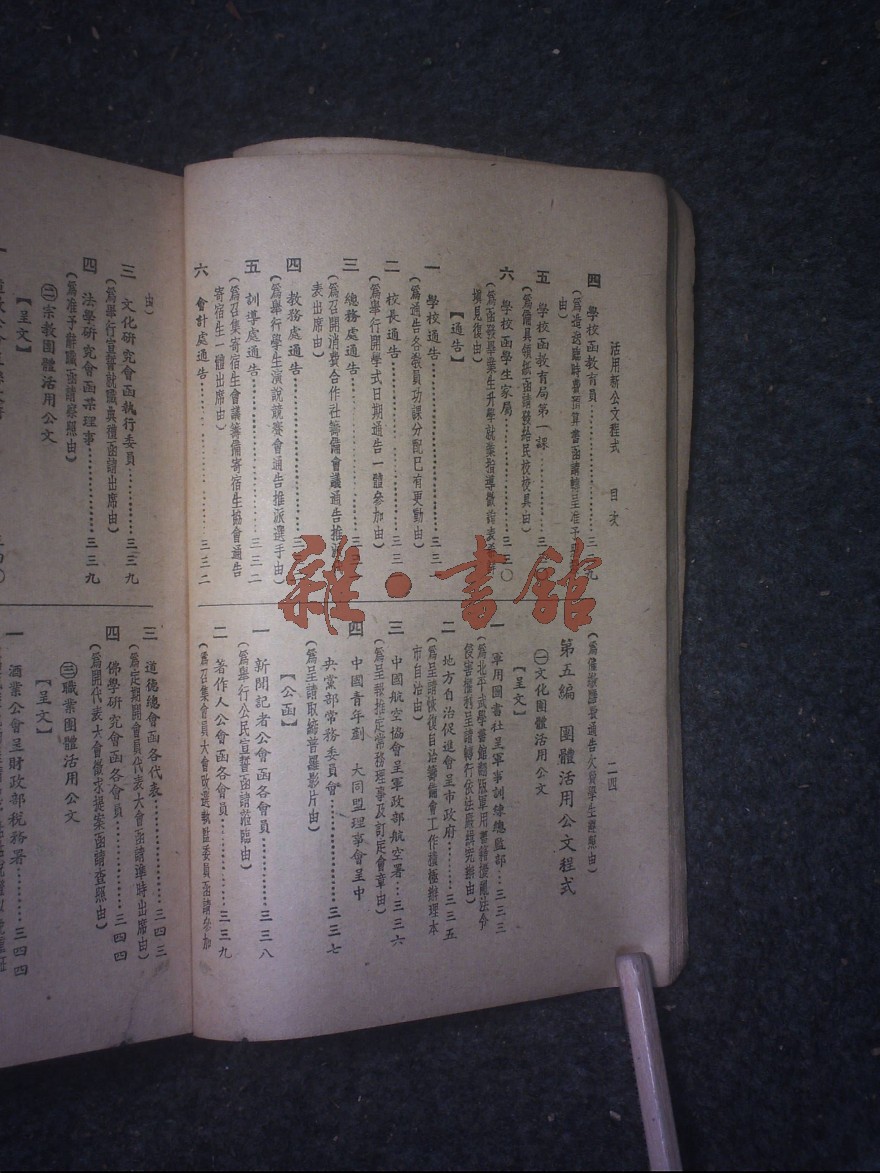 活用新公文程式　目次
二四
四　學校函教育局…………三二九
(爲造送臨時費預算書函請轉呈准予
由)
五　學校函教育局第一課………三三
(爲備具領紙函請發給民校校具由)
六　學校函學生家屬…………三三〇
(爲函發畢業生升學就業指導徵詢表
填見復由)
【通告】
一　學校通告…………三三
(爲通告各敎員功課分配已有更動由)
二　校長通告…………三三
(爲舉行開學式日期通告一體參加由)
三　總務處通告…………三三
(爲召開消費合作社籌備會議通告推派
表出席由)
四　敎務處通告…………三
(爲舉行學生演說競賽會通告推派選手由)
五　訓導處通告…………三三二
(爲召集寄宿生會議籌備寄宿生協會通告
寄宿生一體出席由)
六　會計處通告…………三三二
(爲催繳膳費通告欠費學生遵照由)
第五編　團體活用公文程式
㈠文化團體活用公文
【呈文】
一　軍用圖書社呈軍事訓練總監部…三三三
(爲北平武學書館翻版軍用書籍擾亂法令
侵害權利呈請轉行依法嚴緝究辦由)
二　地方自治促進會呈市政府………三三五
(爲呈請恢復自治籌備會工作積極辦理本
市自治由)
三　中國航空協會呈軍政部航空署…三三六
(爲呈報推定常務理事及訂定會章由)
四　中國青年劃　大同盟理事會呈中
央黨部常務委員會…………三三七
(爲呈請取締普羅影片由)
【公函】
一　新聞記者公會函各會員………三三八
(爲舉行公民宣誓函請蒞臨由)
二　著作人公會函各會員…………三三九
(爲召集會員大會改選執監委員函請參加
由)
三　文化硏究會函執行委員………三三九
(爲舉行宣誓就職典禮函請出席由)
四　法學硏究會函某理事…………三三九
(爲准予辭職函請察照由)
㈡宗敎團體活用公文
【呈文】
三　道德總會函各代表…………三四三
(爲定期開會員代表大會函請準時出席由)
四　佛學硏究會函各會員…………三四四
(爲開代表大會徵求提案函請查照由)
㈢職業團體活用公文
【呈文】
一　酒業公會呈財政部稅務署………三四四
雜·書館